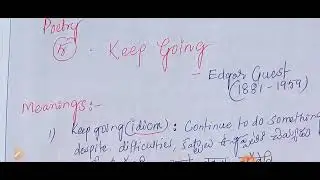 Poetry
15. Keep Going
- Edgar Guest
(1881-1959)
Meanings:-
1) Keep going (idiom) : Continue to do something
despite difficulties,